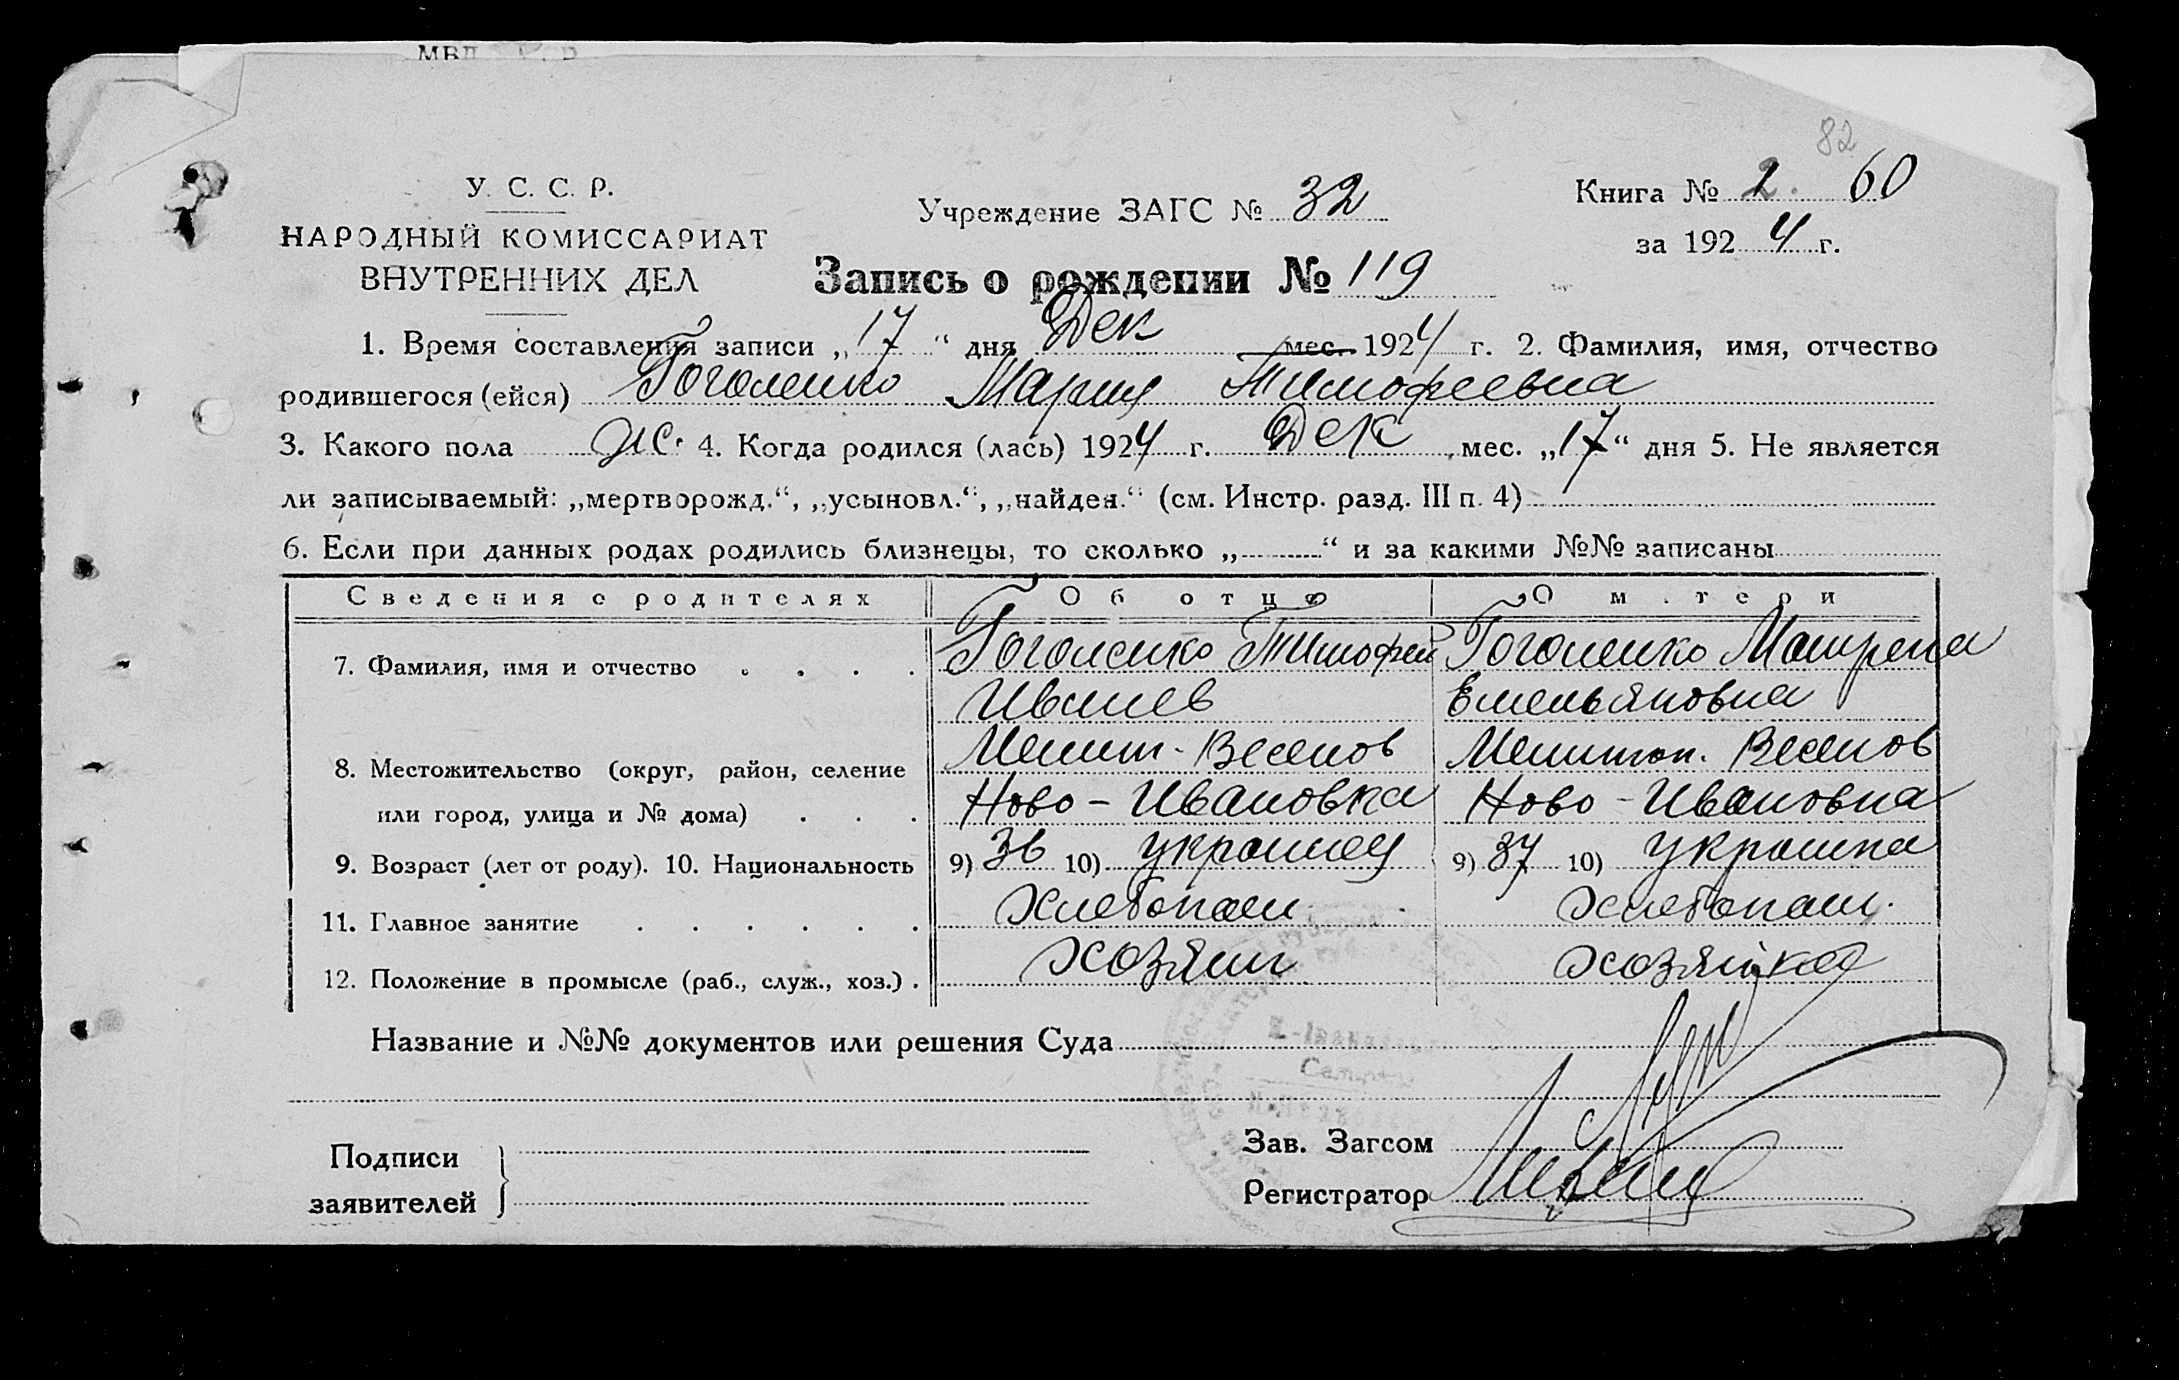 82
У. С. С. Р.
НАРОДНЫЙ КОМИССАРИАТ
ВНУТРЕННИХ ДЕЛ
Учреждение ЗАГС № 32
Книга № 2. 60
за 1924 г.
Запись о рождении № 119
1. Время составления записи „17“ дня Дек мес. 1924 г. 2. Фамилия, имя, отчество
родившегося (ейся) Гоголенко Мария Тимофеевна
3. Какого пола жс. 4. Когда родился (лась) 1924 г. Дек мес. „17“ дня 5. Не является
ли записываемый: „мертворожд.“, „усыновл.“, „найден.“ (см. Инстр. разд. III п. 4)
6. Если при данных родах родились близнецы, то сколько „ “ и за какими №№ записаны
Сведения о родителях Об отце О матери
7. Фамилия, имя и отчество Гоголенко Тимофей Гоголенко Матрена
Иванов Емельяновна
8. Местожительство (округ, район, селение Мелит. Веселов Мелитоп. Веселов
или город, улица и № дома) Ново-Ивановка Ново-Ивановка
9. Возраст (лет от роду). 10. Национальность 9) 36 10) украинец 9) 37 10) украинка
11. Главное занятие Хлебопаш. Хлебопаш.
12. Положение в промысле (раб., служ., хоз.) хозяин хозяйка
Название и №№ документов или решения Суда
Подписи
заявителей
Зав. Загсом
Регистратор